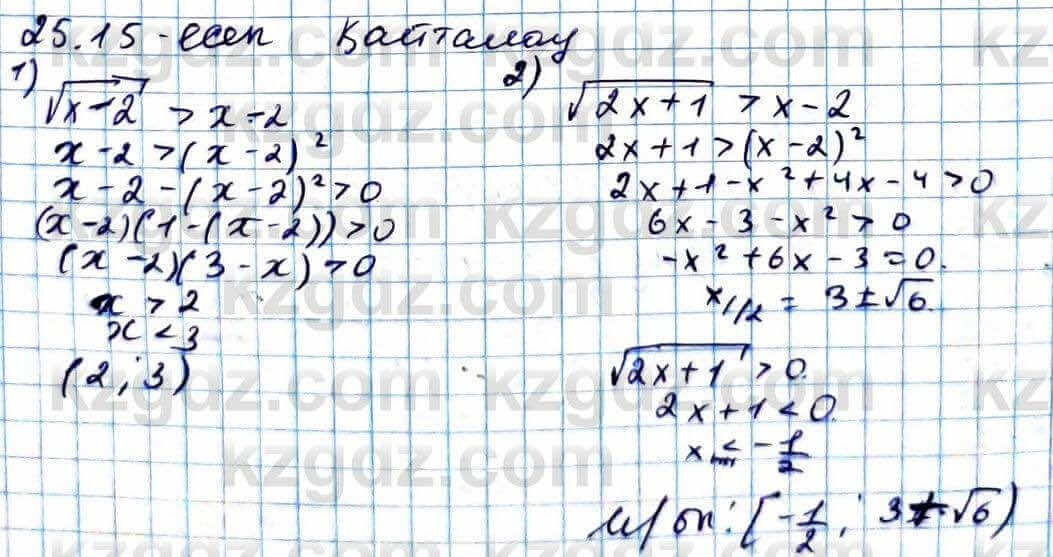 25.15-есеп Қайталау
1)
√x-2 > x-2
x-2>(x-2)²
x-2-(x-2)²>0
(x-2)(1-(x-2))>0
(x-2)(3-x)>0
x > 2
x < 3
(2; 3)
2)
√2x+1 > x-2
2x+1>(x-2)²
2x+1-x²+4x-4>0
6x-3-x²>0
-x²+6x-3=0.
x1/2 = 3±√6.
√2x+1 > 0.
2x+1<0.
x ≤ -1/2
: [-1/2; 3+√6)
kzgdz.com